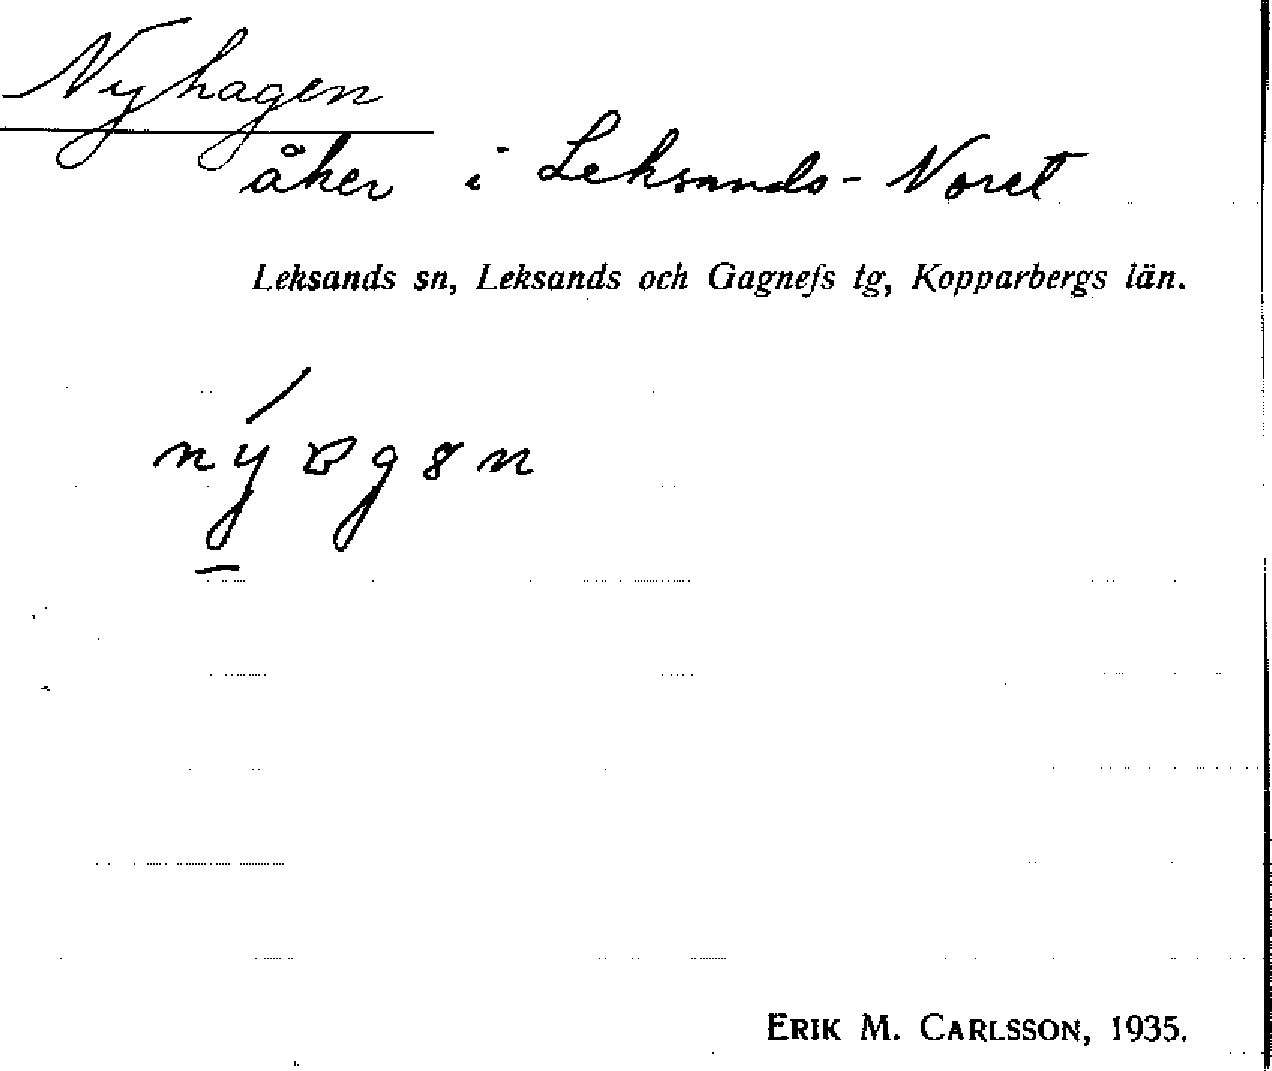 Nyhagen
åker i Leksands-Noret
Leksands sn, Leksands och Gagnefs tg, Kopparbergs län.
ERIK M. CARLSSON, 1935.